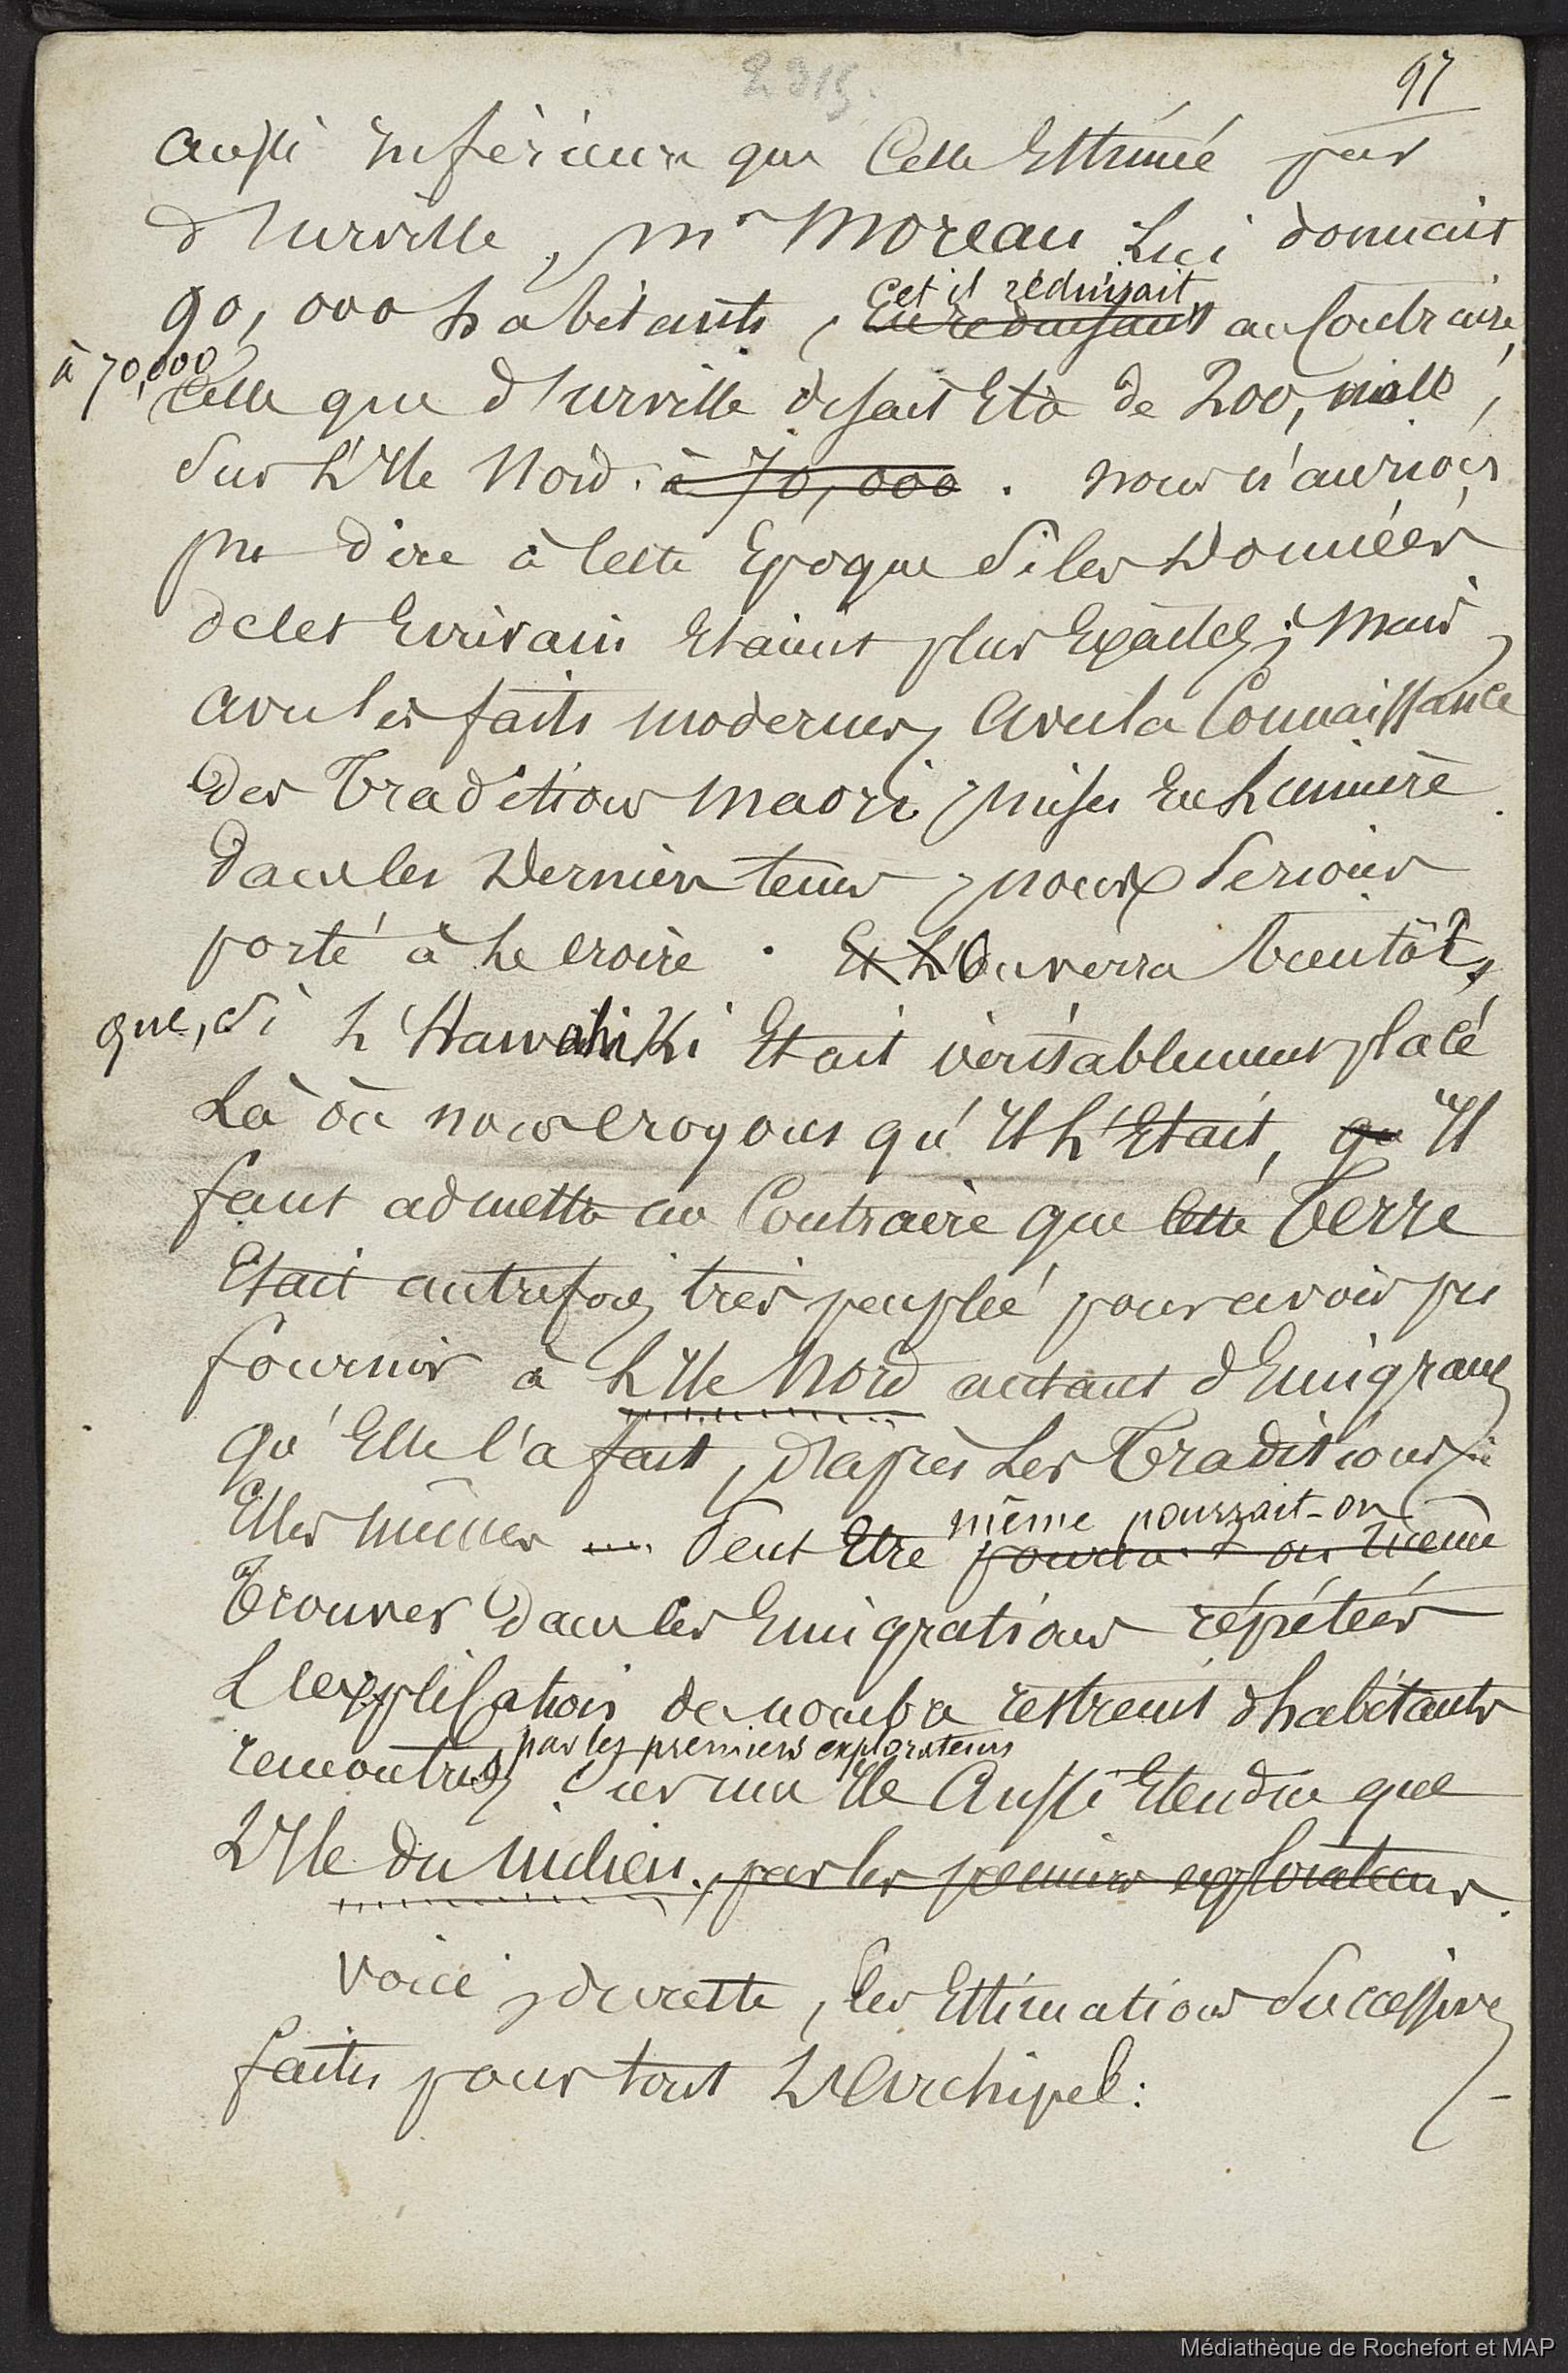 2315.
97
aussi inférieure que celle Estimé par
d'Urville, Mr Moreau Lui donnait
90,000 habitants, En reduisant et il réduisait au Contraire,
à 70,000
celle que d'urville disait Etre de 200, mille,
Sur L'Ile Nord. à 70,000. nous n'aurions
pu dire à cette Epoque Si les Données
de cet Ecrivain Etaient plus Exactes; Mais,
avec les faits modernes, avec la Connaissance
Des Traditions Maori, mises En Lumière
Dans les Derniers tems, nous Serions
porté à Le croire. Et L' On verra bientôt,
que, si L'Hawahiki Etait véritablement placé
Là où nous croyons qu'Il L'Etait, qu Il
faut admettre au Contraire que cette Terre
Etait autrefois, très peuplée pour avoir pu
fournir à L'Ile Nord autant d'Emigrans
qu'Elle l'a fait, d'après Les Traditions
Elles mêmes --- Peut Etre pourrait on même même pourrait-on
Trouver Dans les Emigrations répétées
L'explication du nombre restreint d'habitants
rencontrés, par les premiers explorateurs Sur une Ile Aussi Etendue que
L'Ile du Milieu., par les premiers explorateurs.
Voici, du reste, les Estimations Successives
faites pour tout L'Archipel:
Médiathèque de Rochefort et MAP